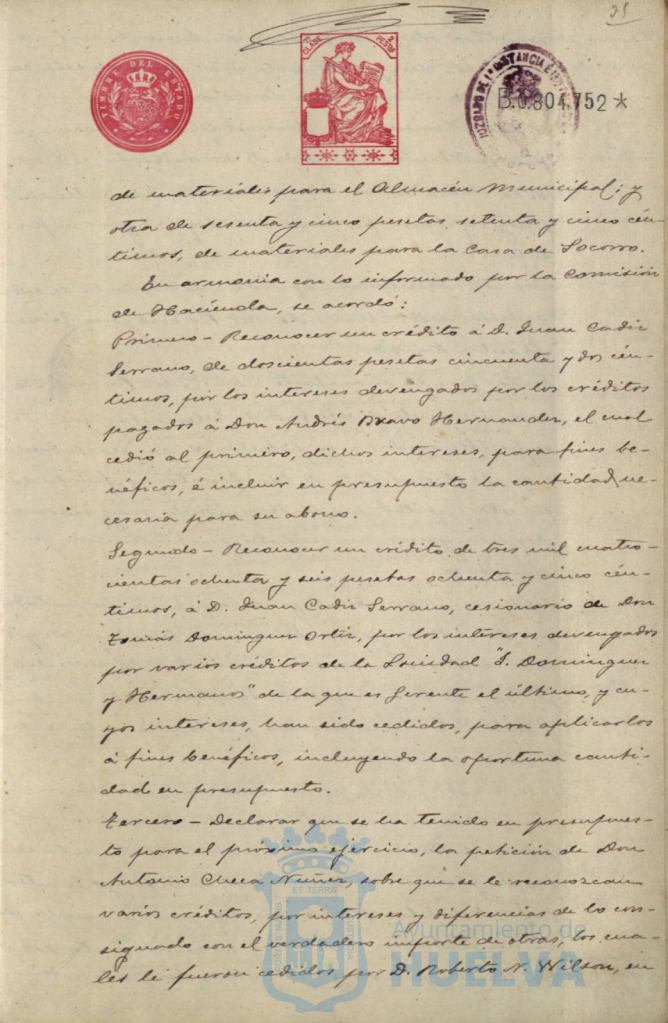 25
TIMBRE DEL ESTADO
7ª CLASE 2 PESETAS
JUZGADO DE 1ª INSTANCIA E
B.0.804.752 *
de materiales para el Almacén Municipal; y
otra de sesenta y cinco pesetas setenta y cinco cén-
timos, de materiales para la Casa de Socorro.
En armonia con lo informado por la Comisión
de Hacienda, se acordó:
Primero – Reconocer un crédito á D. Juan Cadiz
Serrano, de doscientas pesetas cincuenta y dos cén-
timos, por los intereses devengados por los créditos
pagados á Don Andrés Bravo Hernandez, el cual
cedió al primero, dichos intereses, para fines be-
néficos, é incluir en presupuesto la cantidad ne-
cesaria para su abono.
Segundo – Reconocer un crédito de tres mil cuatro-
cientas ochenta y seis pesetas ochenta y cinco cén-
timos, á D. Juan Cadiz Serrano, cesionario de Don
Tomás Dominguez Ortiz, por los intereses devengados
por varios créditos de la Sociedad "T. Dominguez
y Hermanos" de la que es Gerente el último, y cu-
yos intereses, han sido cedidos, para aplicarlos
á fines benéficos, incluyendo la oportuna canti-
dad en presupuesto.
Tercero – Declarar que se ha tenido en presupues-
to para el próximo ejercicio, la petición de Don
Antonio Checa Nuñez, sobre que se le reconozcan
varios créditos, por intereses y diferencias de lo con-
signado con el verdadero importe de otras, los cua-
les le fueron cedidos por D. Roberto N. Wilson, en
ET TERRA
Ayuntamiento de
HUELVA